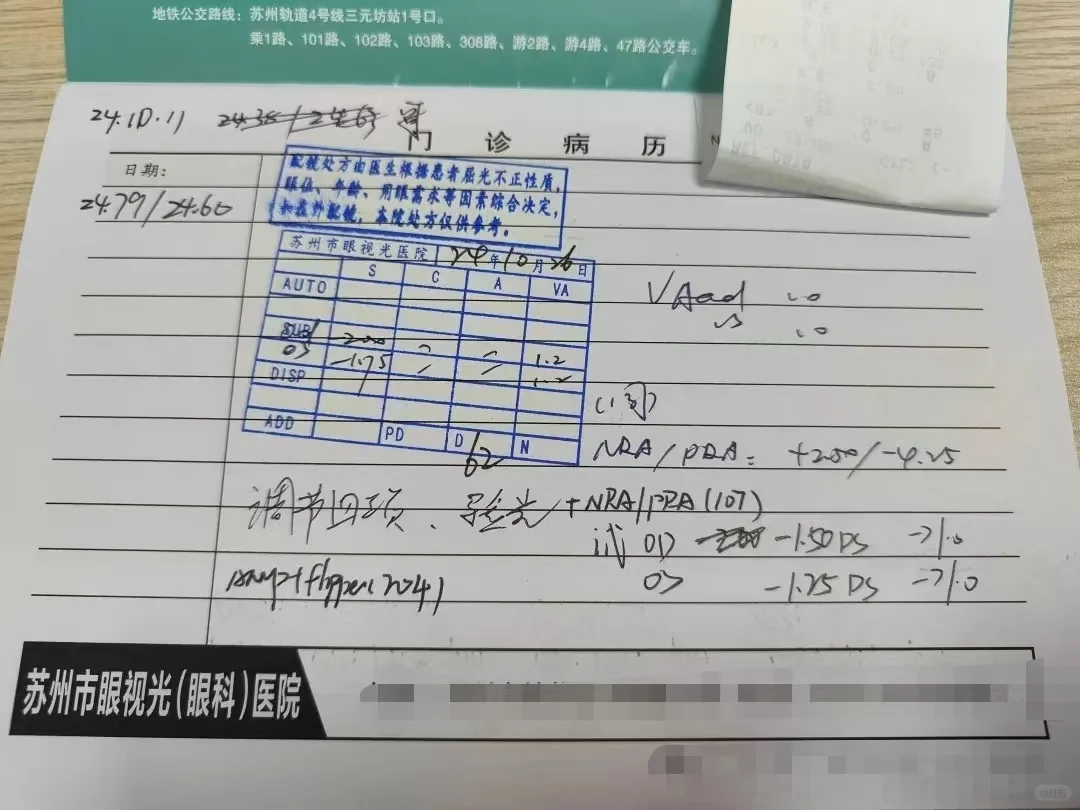 地铁公交路线：苏州轨道4号线三元坊站1号口。
乘1路、101路、102路、103路、308路、游2路、游4路、47路公交车。
24.10.11
门诊病历
日期：
24.79/24.60
配镜处方由医生根据患者屈光不正性质，
眼位、年龄、用眼需求等因素综合决定，
如在外配镜，本院处方仅供参考。
苏州市眼视光医院 24年10月26日
S C A VA
AUTO
SUB -2.00 1.2
OS -1.75 1.2
DISP
ADD PD D 62 N
VAod 1.0
os 1.0
NRA/PRA: +2.00/-4.25
调节四项、验光+NRA/PRA(107)
试 OD -1.50DS →1.0
OS -1.25DS →1.0
苏州市眼视光(眼科)医院
小红书